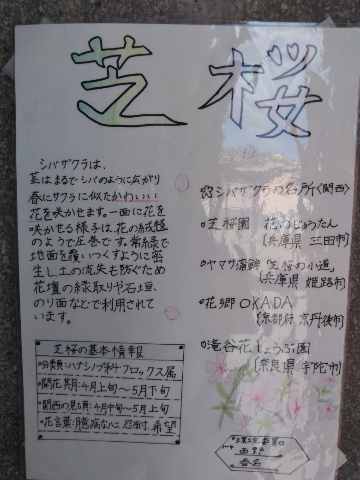 芝桜
シバザクラは、
茎はまるでシバのように広がり
春にサクラに似たかわいい
花を咲かせます。一面に花を
咲かせる様子は、花の絨毯
のようで圧巻です。常緑で
地面を覆いつくすように密
生し、土の流失も防ぐため
花壇の縁取りや石垣、
のり面などで利用されて
います。
芝桜の基本情報
•分類:ハナシノブ科フロックス属
•開花期:4月上旬〜5月下旬
•関西の見頃:4月中旬〜5月上旬
•花言葉:臆病な心、忍耐、希望
☆シバザクラの名所<関西>
•芝桜園 花のじゅうたん
(兵庫県 三田市)
•ヤマサ蒲鉾 芝桜の小道
(兵庫県 姫路市)
•花郷OKADA
(京都府 京丹後市)
•滝谷花しょうぶ園
(奈良県 宇陀市)
春名